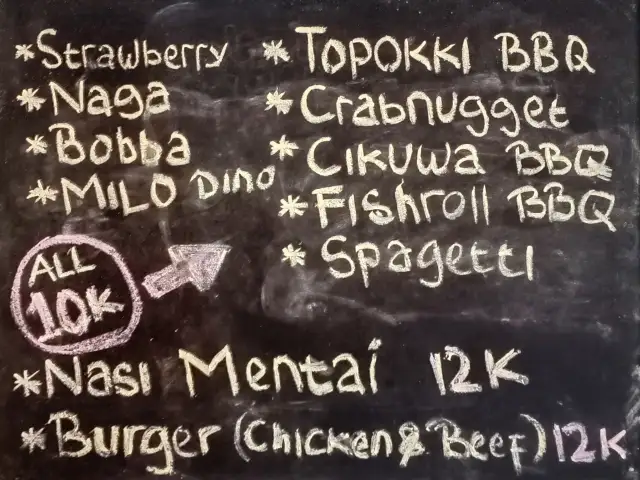 *Strawberry
*Naga
*Bobba
*MILO Dino
ALL
10K
*TOPOKKI BBQ
*Crabnugget
*Cikuwa BBQ
*Fishroll BBQ
*Spagetti
*Nasi Mentai 12K
*Burger (Chicken & Beef) 12K